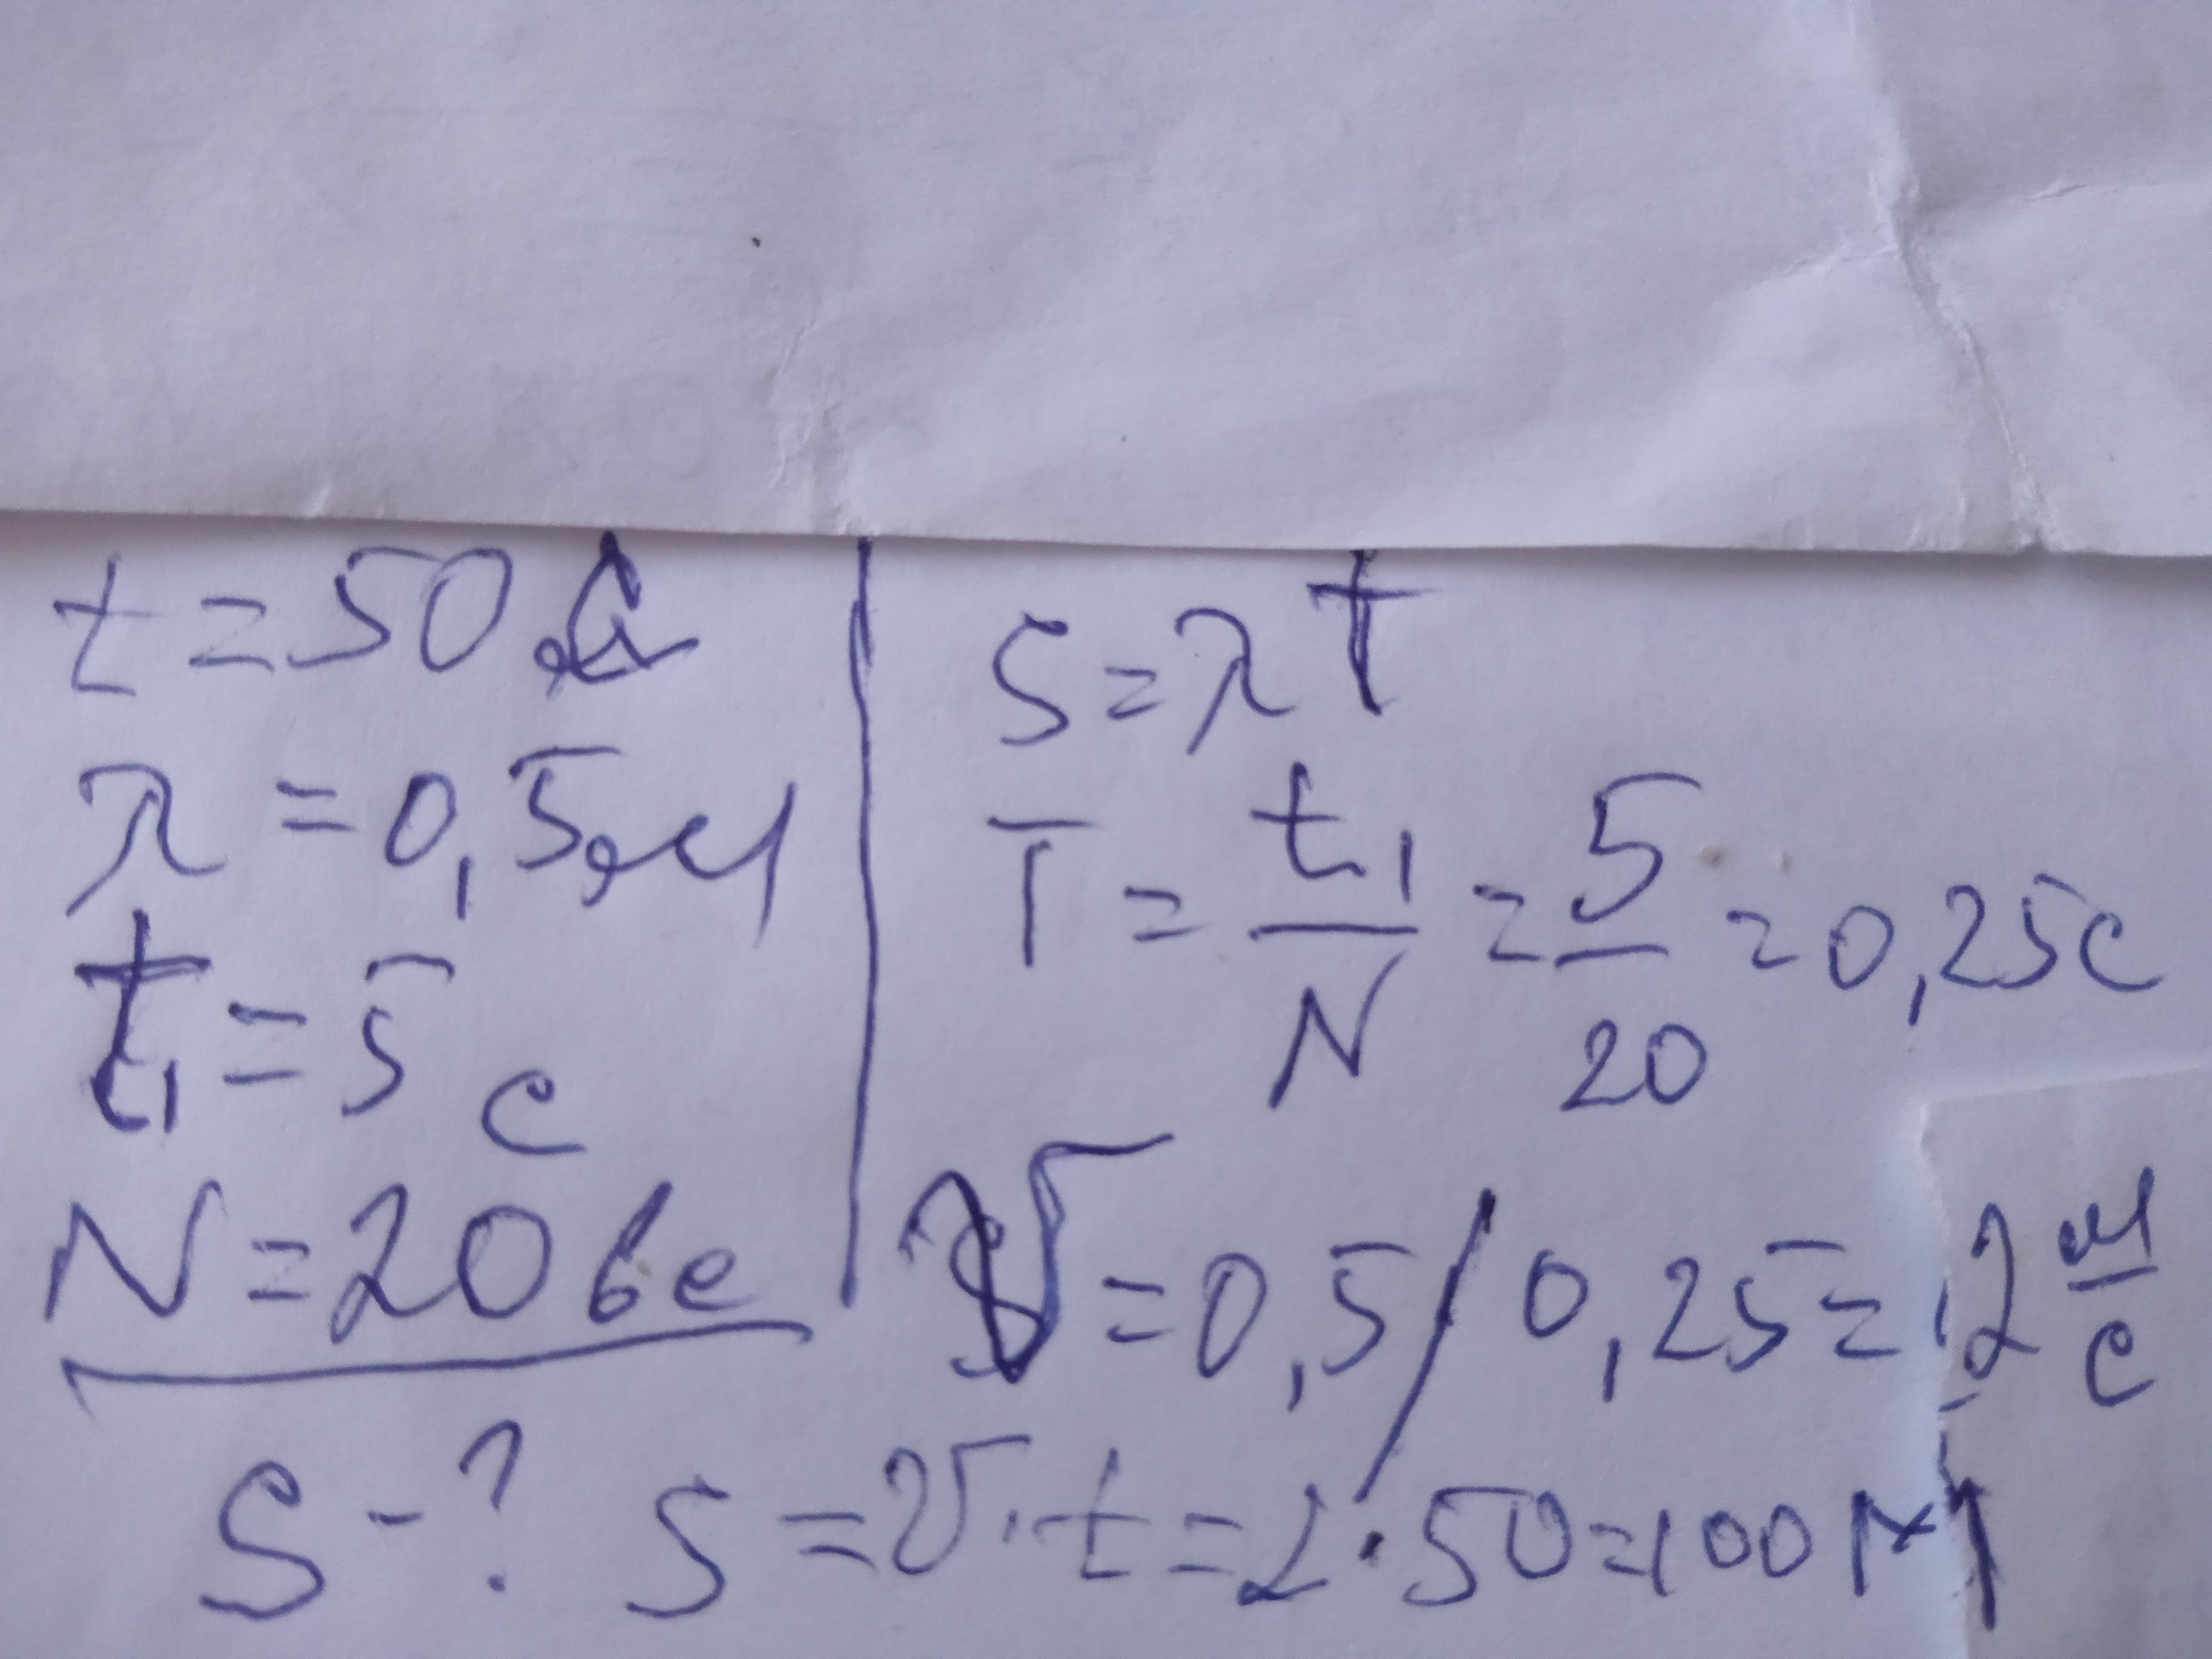 t = 50 с
λ = 0,5 м
t₁ = 5 с
N = 20 вс
S - ?
S = λ T
T = t₁/N = 5/20 = 0,25 с
υ = 0,5 / 0,25 = 2 м/с
S = υ · t = 2 · 50 = 100 м